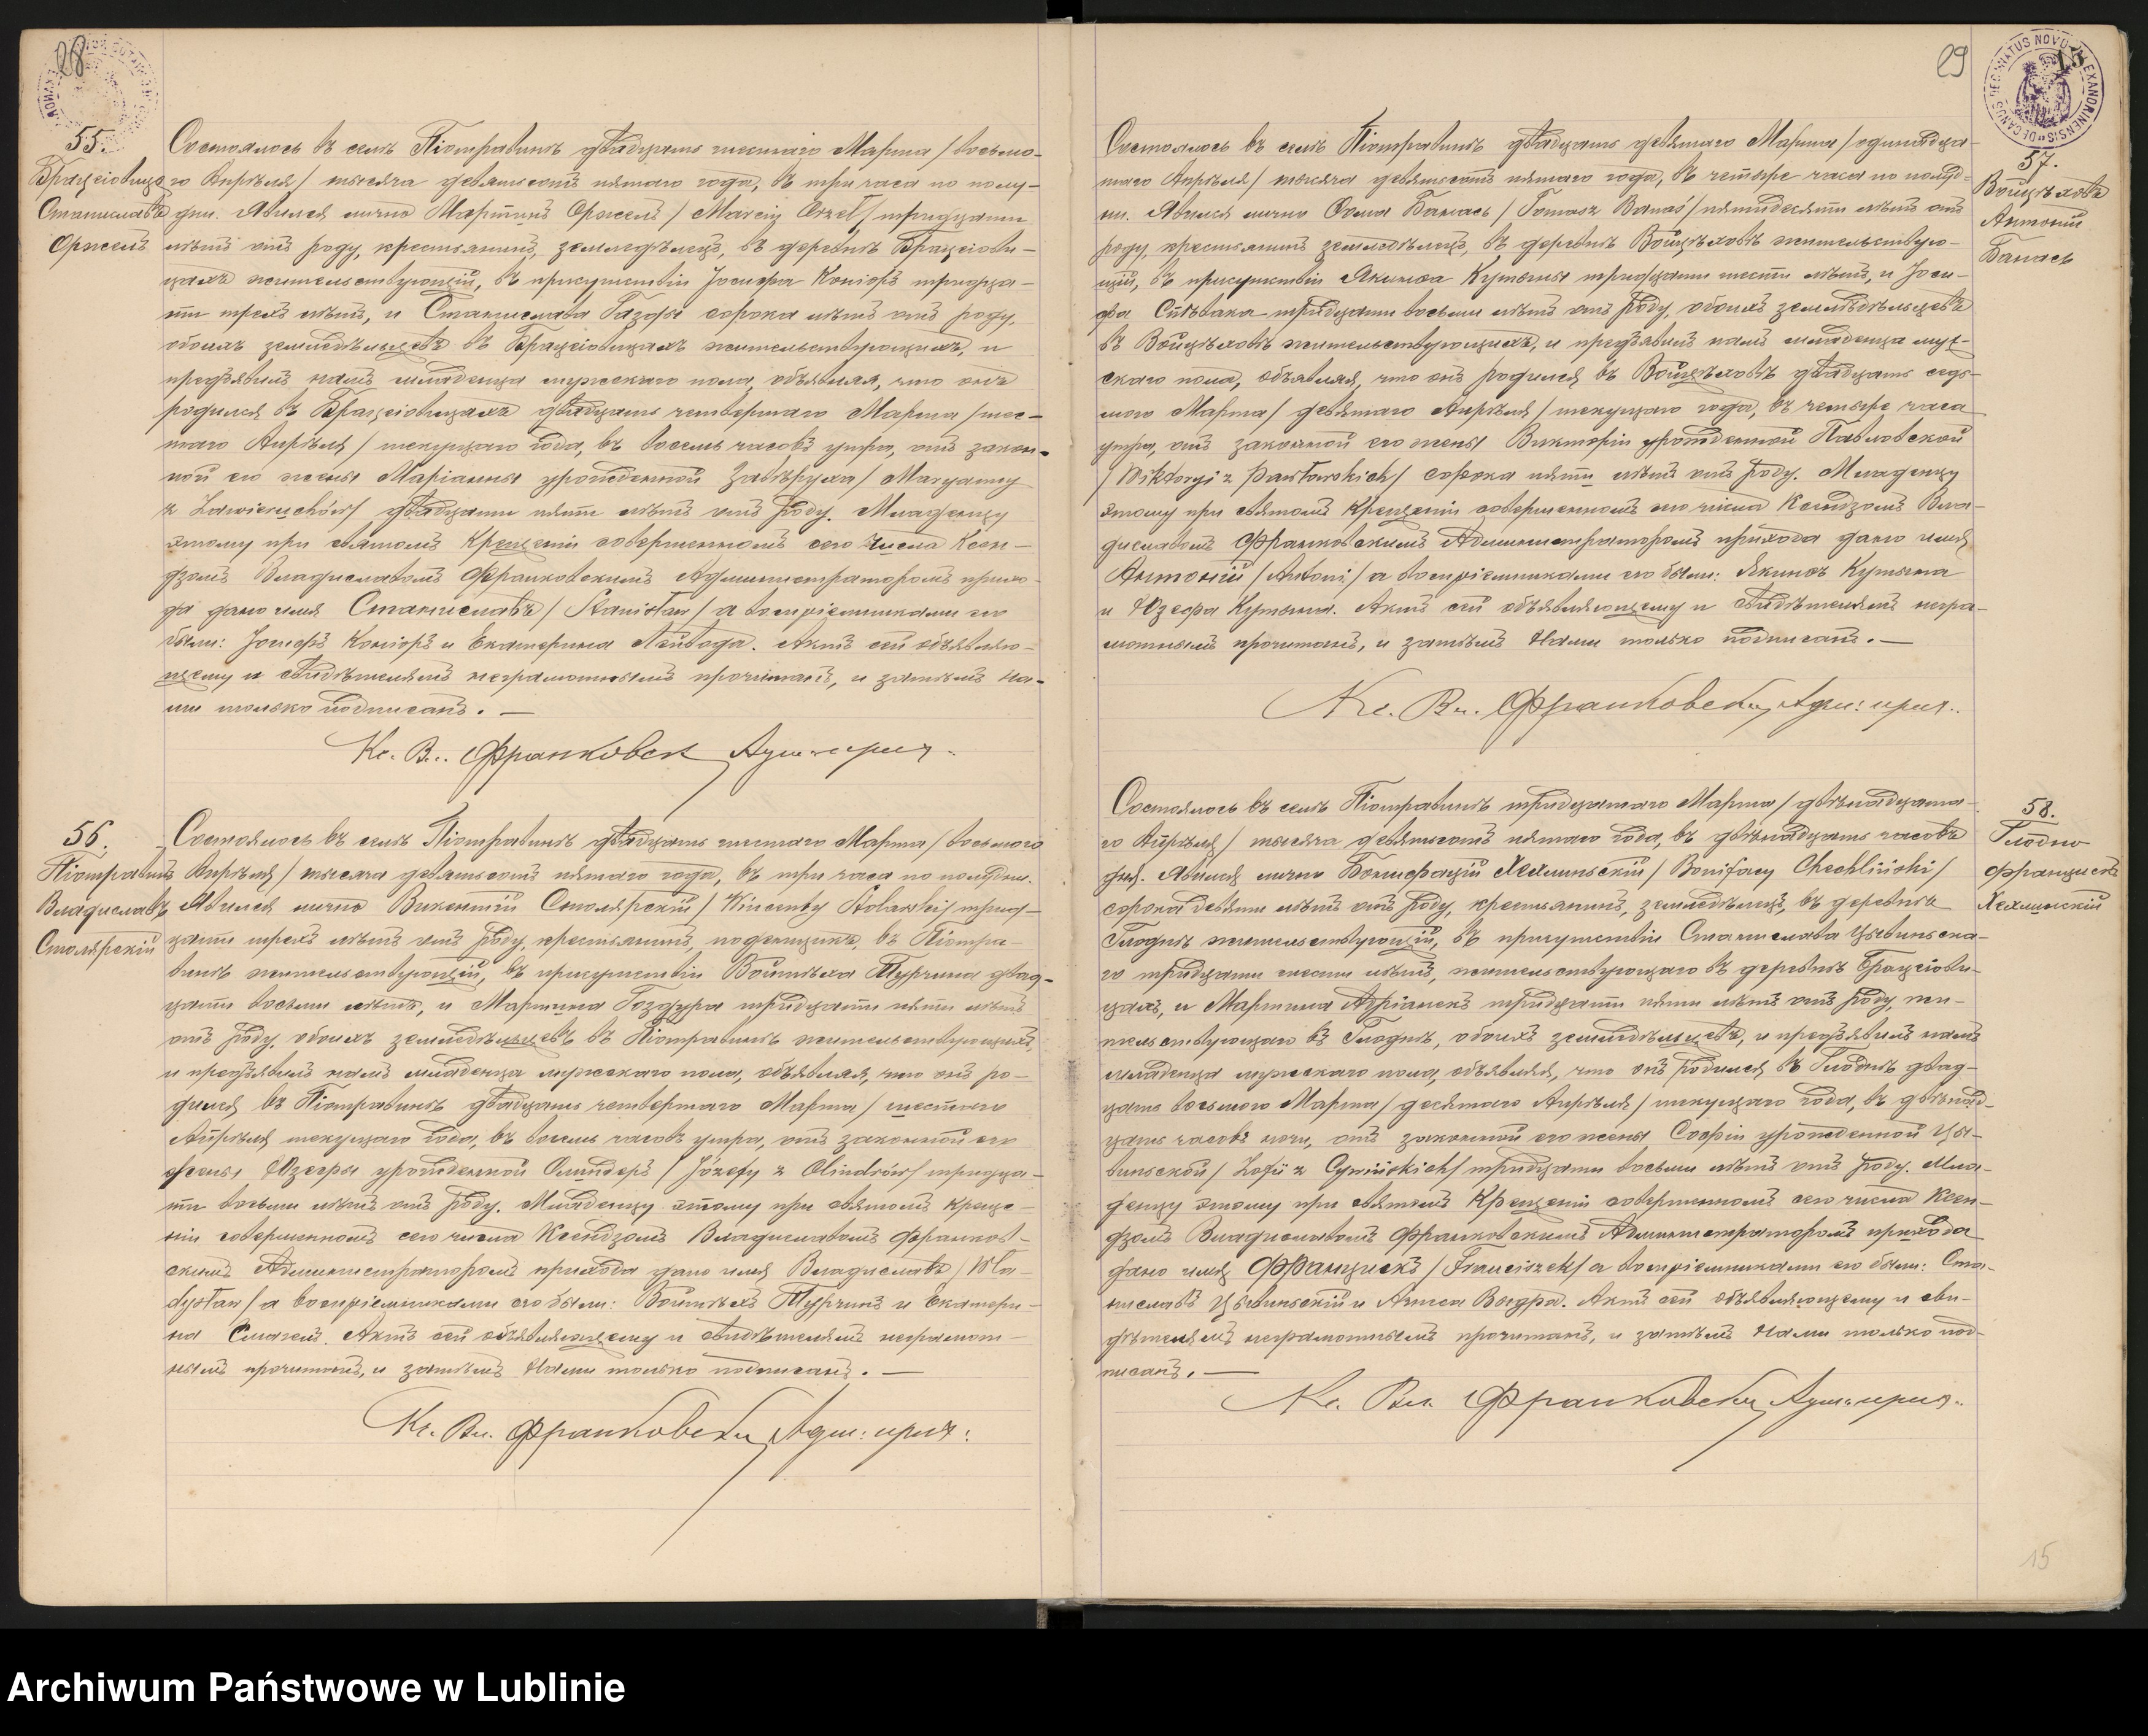 28
55.
Брацѣовице
Станиславъ
Оржелъ
Состоялось въ селѣ Піотравинѣ двадцать шестаго Марта / восьма-
го Апрѣля / тысяча девятьсотъ пятаго года, въ три часа по полу-
дни. Явился лично Мартинъ Оржелъ / Marcin Orzeł / тридцати
лѣтъ отъ роду, крестьянинъ, земледѣлецъ, въ деревнѣ Брацѣови-
цахъ жительствующій, въ присутствіи Іосифа Коніоръ тридца-
ти трехъ лѣтъ, и Станислава сорока лѣтъ отъ роду,
обоихъ земледѣльцевъ въ Брацѣовицахъ жительствующихъ, и
предъявилъ намъ младенца мужескаго пола, объявляя, что онъ
родился въ Брацѣовицахъ двадцать четвертаго Марта / шес-
таго Апрѣля / текущаго года, въ восемь часовъ утра, отъ закон-
ной его жены Маріанны урожденной Завѣруха / Maryanny
z Zawieruchów / двадцати пяти лѣтъ отъ роду. Младенцу
этому при святомъ Крещеніи совершенномъ сего числа Ксен-
дзомъ Владиславомъ Франковскимъ Администраторомъ прихо-
да дано имя Станиславъ / Stanisław / а воспріемниками его
были: Іосифъ Коніоръ и Екатерина . Актъ сей объявляю-
щему и свидѣтелямъ неграмотнымъ прочитанъ, и затѣмъ На-
ми только подписанъ. —
Кс. Вл. Франковск Адм. прих.
56.
Піотравинъ
Владиславъ
Столярскій
Состоялось въ селѣ Піотравинѣ двадцать шестаго Марта / восьмаго
Апрѣля / тысяча девятьсотъ пятаго года, въ три часа по полудни.
Явился лично Викентій Столярскій / Wincenty Stolarski / трид-
цати трехъ лѣтъ отъ роду, крестьянинъ, поденщикъ, въ Піотра-
винѣ жительствующій, въ присутствіи Войтѣха двад-
цати восьми лѣтъ, и Мартина Гоздура тридцати пяти лѣтъ
отъ роду, обоихъ земледѣльцевъ въ Піотравинѣ жительствующихъ,
и предъявилъ намъ младенца мужескаго пола, объявляя, что онъ ро-
дился въ Піотравинѣ двадцать четвертаго Марта / шестаго
Апрѣля текущаго года, въ восемь часовъ утра, отъ законной его
жены Юзефы урожденной Олиндеръ / Józefy z Olindrów / тридца-
ти восьми лѣтъ отъ роду. Младенцу этому при святомъ Креще-
ніи совершенномъ сего числа Ксендзомъ Владиславомъ Франков-
скимъ Администраторомъ прихода дано имя Владиславъ / Wła-
dysław / а воспріемниками его были: Войтѣхъ и Екатери-
на . Актъ сей объявляющему и свидѣтелямъ неграмот-
нымъ прочитанъ, и затѣмъ Нами только подписанъ. —
Кс. Вл. Франковски Адм: прих:
29
DECANUS DECANATUS NOVO ALEXANDRINENSIS
15
57.
Войцѣховъ
Антоній
Банась
Состоялось въ селѣ Піотравинѣ двадцать девятаго Марта / одинадца-
таго Апрѣля / тысяча девятьсотъ пятаго года, въ четыре часа по полуд-
ни. Явился лично Ѳома Банась / Tomasz Banaś / пятидесяти лѣтъ отъ
роду, крестьянинъ земледѣлецъ, въ деревнѣ Войцѣховѣ жительствую-
щій, въ присутствіи Якима тридцати шести лѣтъ, и Іоси-
фа тридцати восьми лѣтъ отъ роду, обоихъ земледѣльцевъ
въ Войцѣховѣ жительствующихъ, и предъявилъ намъ младенца муж-
скаго пола, объявляя, что онъ родился въ Войцѣховѣ двадцать седь-
маго Марта / девятаго Апрѣля / текущаго года, въ четыре часа
утра, отъ законной его жены Викторіи урожденной Павловской
/ Wiktoryi z Pawłowskich / сорока пяти лѣтъ отъ роду. Младенцу
этому при святомъ Крещеніи совершенномъ сего числа Ксендзомъ Вла-
диславомъ Франковскимъ Администраторомъ прихода дано имя
Антоній / Antoni / а воспріемниками его были: Якимъ
и Юзефа . Актъ сей объявляющему и свидѣтелямъ негра-
мотнымъ прочитанъ, и затѣмъ Нами только подписанъ. —
Кс. Вл. Франковски, Адм: прих..
58.
Глодно
Францискъ
Хехлинскій
Состоялось въ селѣ Піотравинѣ тридцатаго Марта / двѣнадцата-
го Апрѣля / тысяча девятьсотъ пятаго года, въ двѣнадцать часовъ
дня. Явился лично Бонифацій Хехлиньскій / Bonifacy Chechliński /
сорока девяти лѣтъ отъ роду, крестьянинъ, земледѣлецъ, въ деревнѣ
Глоднѣ жительствующій, въ присутствіи Станислава Цывиньска-
го тридцати шести лѣтъ, жительствующаго въ деревнѣ Брацѣови-
цахъ, и Мартина Адріанекъ тридцати пяти лѣтъ отъ роду, жи-
тельствующаго въ Глоднѣ, обоихъ земледѣльцевъ, и предъявилъ намъ
младенца мужескаго пола, объявляя, что онъ родился въ Глоднѣ двад-
цать восьмаго Марта / десятаго Апрѣля / текущаго года, въ двѣнад-
цать часовъ ночи, отъ законной его жены Софіи урожденной Цы-
виньской / Zofii z Cywińskich / тридцати восьми лѣтъ отъ роду. Мла-
денцу этому при святомъ Крещеніи совершенномъ сего числа Ксен-
дзомъ Владиславомъ Франковскимъ Администраторомъ прихода
дано имя Францискъ / Franciszek / а воспріемниками его были: Ста-
ниславъ Цывиньскій и Агнеса . Актъ сей объявляющему и сви-
дѣтелямъ неграмотнымъ прочитанъ, и затѣмъ Нами только под-
писанъ. —
Кс. Вл. Франковски, Адм: прих..
15
Archiwum Państwowe w Lublinie